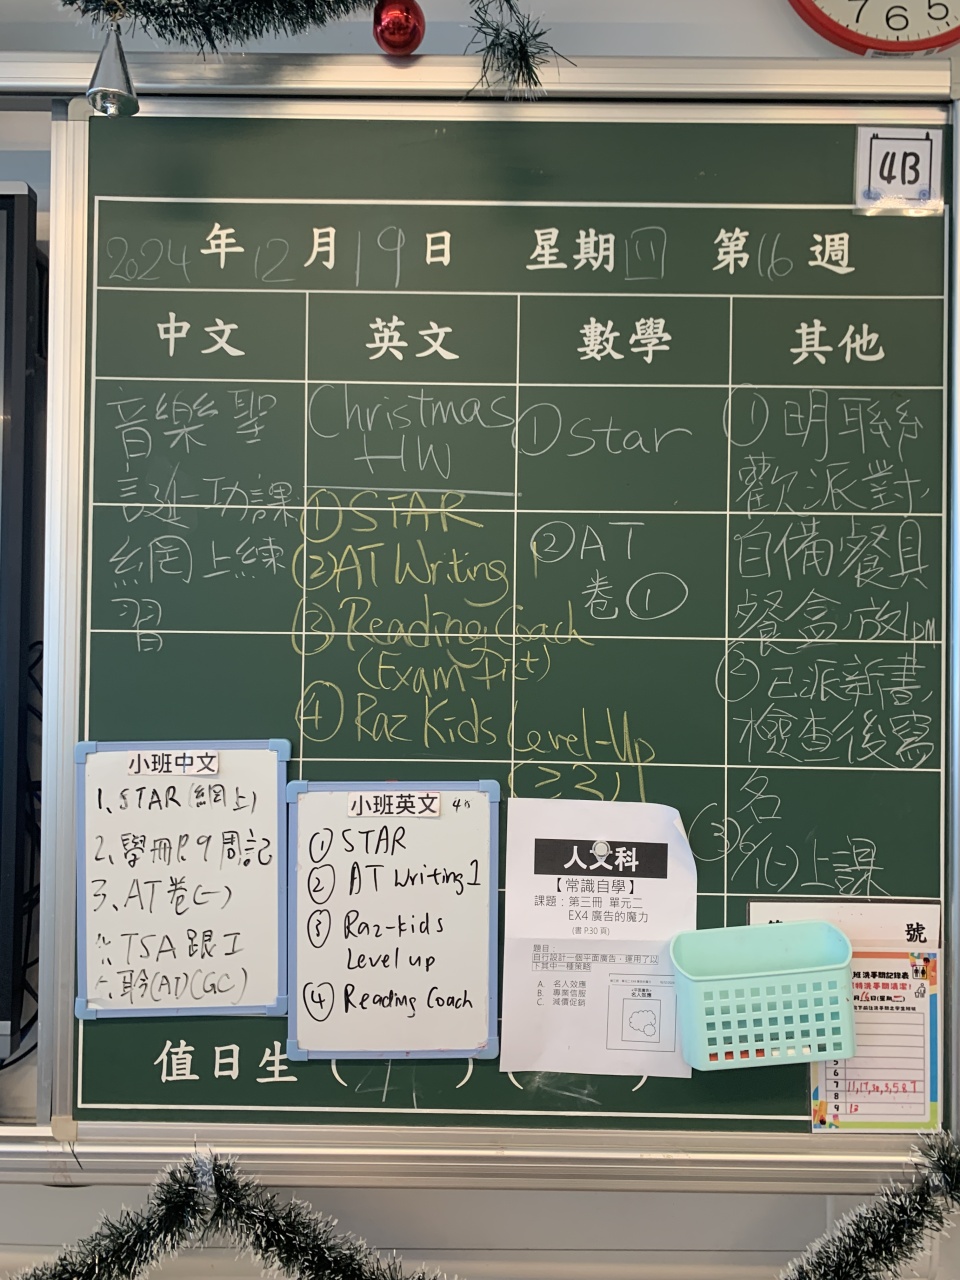 7 6 5
4B
2024年12月19日 星期四 第16週
中文 英文 數學 其他
音樂聖
誕功課
網上練
習
Christmas
HW
①STAR
②AT Writing 1
③Reading Coach
(Exam Dict)
④Raz Kids Level-Up
(≥2)
①Star
②AT
卷①
①明聯
歡派對,
自備餐具
餐盒,放1pm
②已派新書,
檢查後寫
名
③6/1(一)上課
小班中文
1、STAR(網上)
2、學冊P.9周記
3、AT卷(一)
TSA跟工
聆(AI)(GC)
小班英文
①STAR
②AT Writing 1
③Raz-kids
Level up
④Reading Coach
人文科
【常識自學】
課題：第三冊 單元二
EX4 廣告的魔力
(書 P.30 頁)
題目：
自行設計一個平面廣告，運用了以
下其中一種策略
A. 名人效應
B. 專業信服
C. 減價促銷
名人效應
號
6
7 11,17,
8
9 12
值日生 (4) ( )